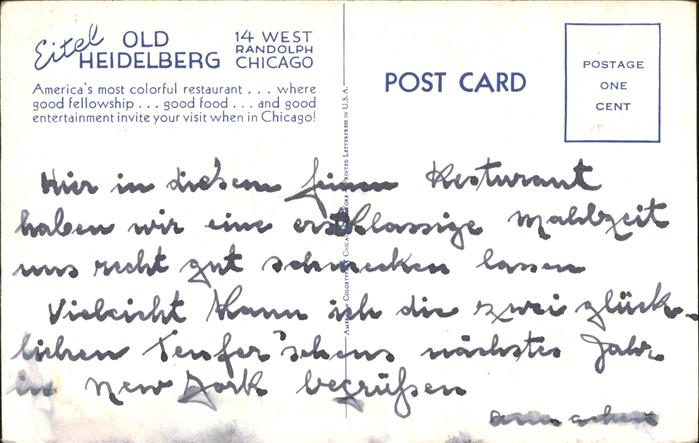 Eitel OLD HEIDELBERG
14 WEST RANDOLPH CHICAGO
America's most colorful restaurant . . . where
good fellowship . . . good food . . . and good
entertainment invite your visit when in Chicago!
POST CARD
POSTAGE
ONE
CENT
Hier in diesem feinen Resturant
haben wir eine erstklassige Mahlzeit
uns recht gut schmecken lassen
Vieleicht kann ich die zwei glück-
lichen Teufer'schens nächstes Jahr
in New York begrüßen